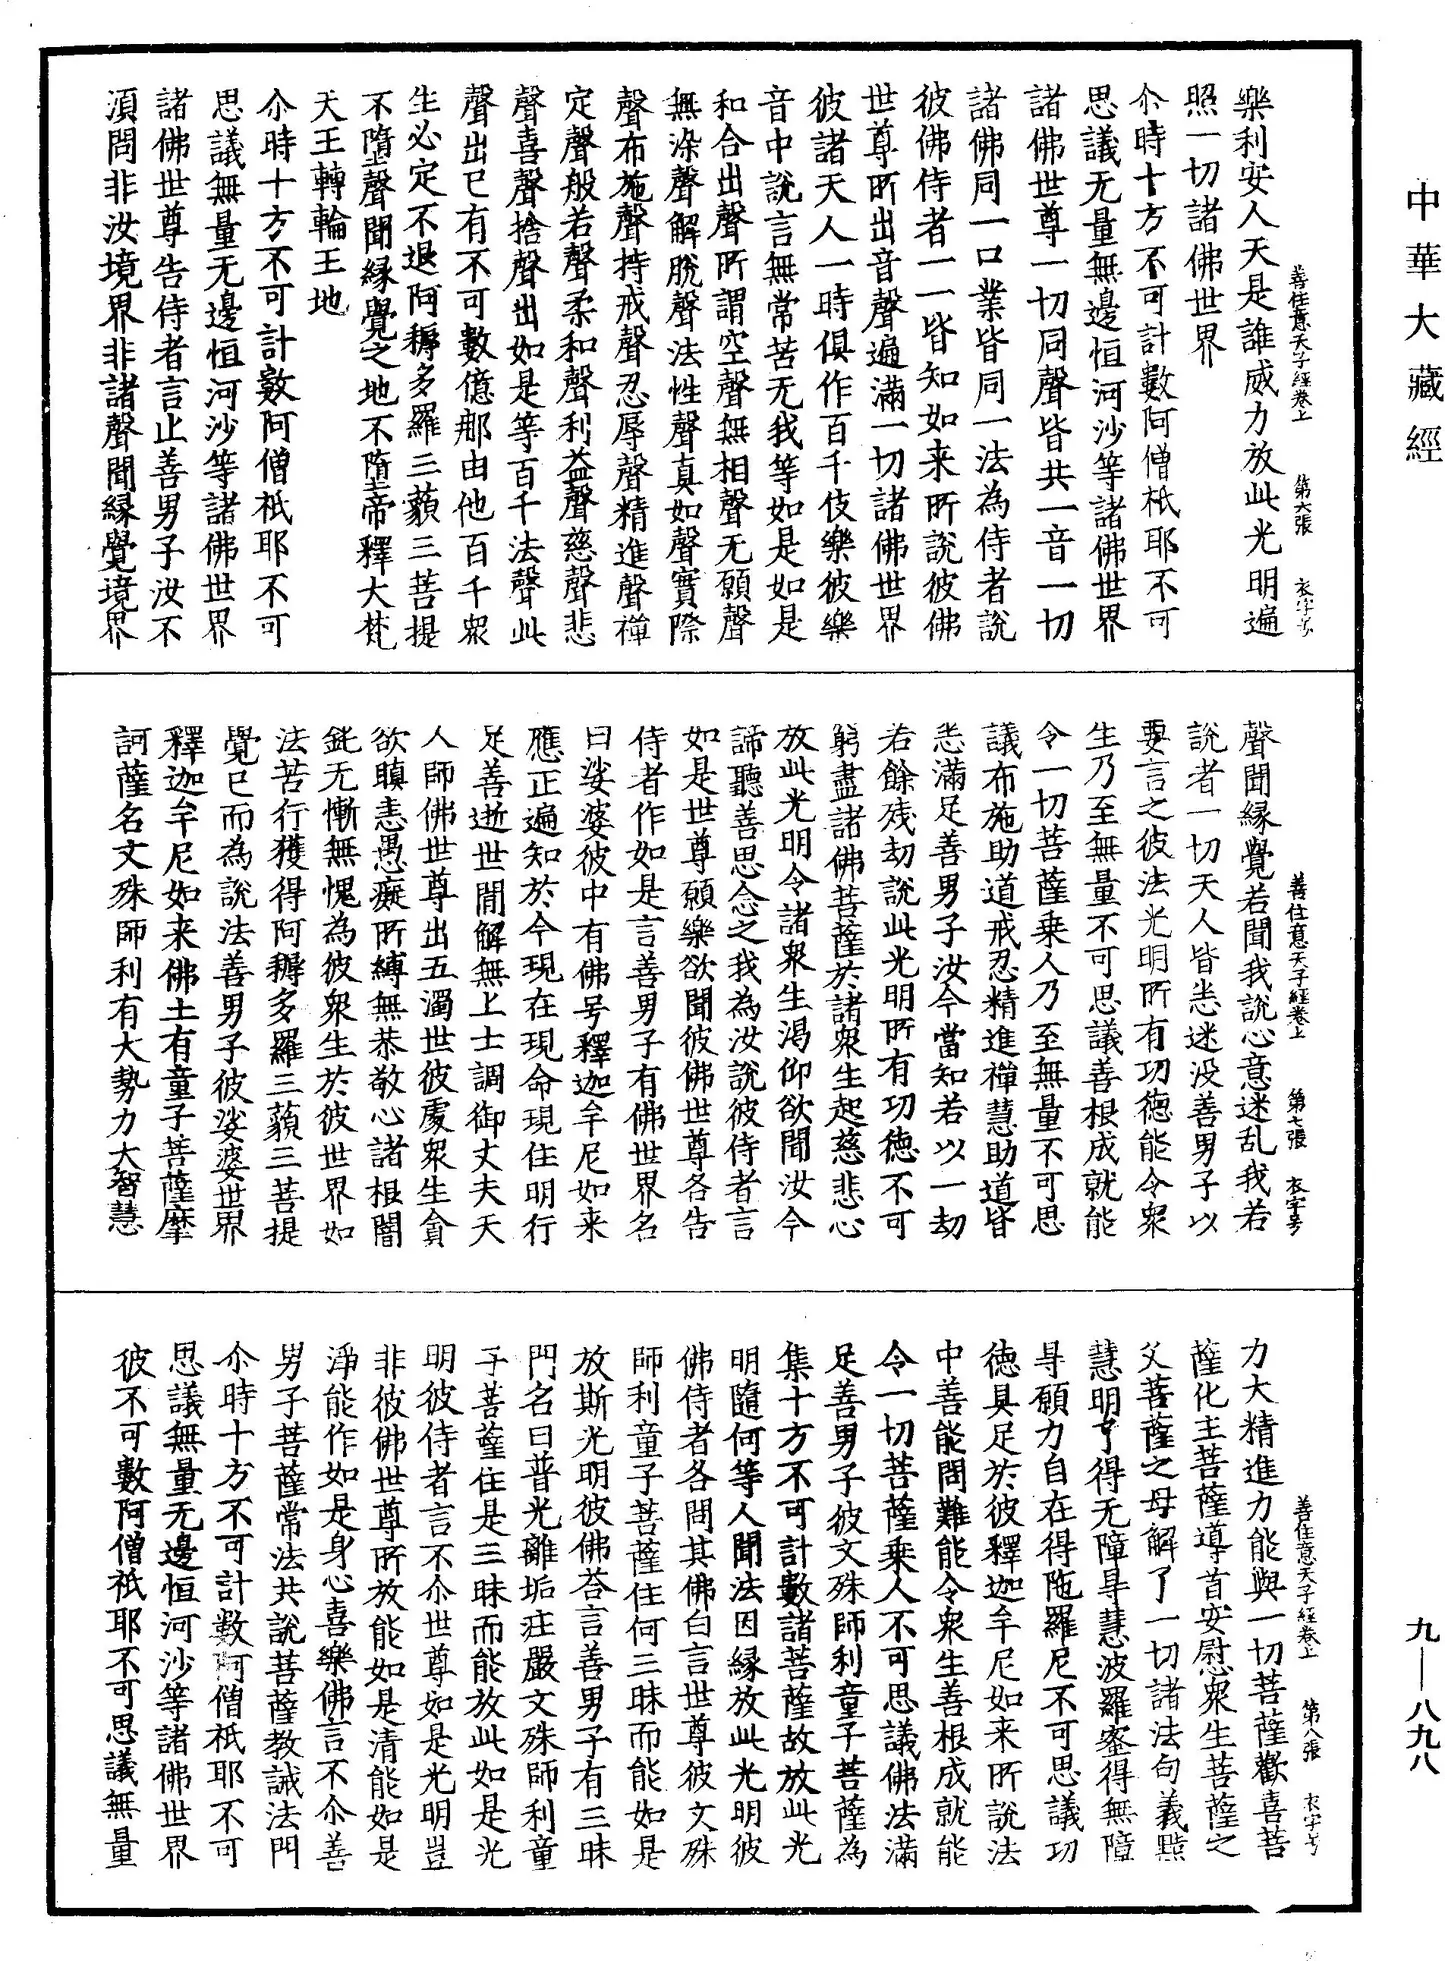 中華大藏經
善住意天子經卷上　第六張　衣字号
樂利安人天是誰威力放此光明遍
照一切諸佛世界
尒時十方不可計數阿僧祇耶不可
思議无量無邊恒河沙等諸佛世界
諸佛世尊一切同聲皆共一音一切
諸佛同一口業皆同一法為侍者說
彼佛侍者一一皆知如来所說彼佛
世尊所出音聲遍滿一切諸佛世界
彼諸天人一時俱作百千伎樂彼樂
音中說言無常苦无我等如是如是
和合出聲所謂空聲無相聲无願聲
無染聲解脫聲法性聲真如聲實際
聲布施聲持戒聲忍辱聲精進聲禪
定聲般若聲柔和聲利益聲慈聲悲
聲喜聲捨聲出如是等百千法聲此
聲出已有不可數億那由他百千衆
生必定不退阿耨多羅三藐三菩提
不墮聲聞緣覺之地不墮帝釋大梵
天王轉輪王地
尒時十方不可計數阿僧祇耶不可
思議無量无邊恒河沙等諸佛世界
諸佛世尊告侍者言止善男子汝不
須問非汝境界非諸聲聞緣覺境界
善住意天子經卷上　第七張　衣字号
聲聞緣覺若聞我說心意迷乱我若
說者一切天人皆悉迷没善男子以
要言之彼法光明所有功德能令衆
生乃至無量不可思議善根成就能
令一切菩薩乗人乃至無量不可思
議布施助道戒忍精進禪慧助道皆
悉滿足善男子汝今當知若以一劫
若餘残劫說此光明所有功德不可
窮盡諸佛菩薩於諸衆生起慈悲心
放此光明令諸衆生渴仰欲聞汝今
諦聽善思念之我為汝說彼侍者言
如是世尊願樂欲聞彼佛世尊各告
侍者作如是言善男子有佛世界名
曰娑婆彼中有佛号釋迦牟尼如来
應正遍知於今現在現命現住明行
足善逝世間解無上士調御丈夫天
人師佛世尊出五濁世彼處衆生貪
欲瞋恚愚癡所縛無恭敬心諸根闇
鈍无慚無愧為彼衆生於彼世界如
法苦行獲得阿耨多羅三藐三菩提
覺已而為說法善男子彼娑婆世界
釋迦牟尼如来佛土有童子菩薩摩
訶薩名文殊師利有大勢力大智慧
善住意天子經卷上　第八張　衣字号
力大精進力能與一切菩薩歡喜菩
薩化主菩薩導首安慰衆生菩薩之
父菩薩之母解了一切諸法句義黠
慧明了得无障㝵慧波羅蜜得無障
㝵願力自在得陁羅尼不可思議功
德具足於彼釋迦牟尼如来所說法
中善能問難能令衆生善根成就能
令一切菩薩乗人不可思議佛法滿
足善男子彼文殊師利童子菩薩為
集十方不可計數諸菩薩故放此光
明隨何等人聞法因緣放此光明彼
佛侍者各問其佛白言世尊彼文殊
師利童子菩薩住何三昧而能如是
放斯光明彼佛荅言善男子有三昧
門名曰普光離垢莊嚴文殊師利童
子菩薩住是三昧而能放此如是光
明彼侍者言不尒世尊如是光明豈
非彼佛世尊所放能如是清能如是
淨能作如是身心喜樂佛言不尒善
男子菩薩常法共說菩薩教誡法門
尒時十方不可計數阿僧祇耶不可
思議無量无邊恒河沙等諸佛世界
彼不可數阿僧祇耶不可思議無量
九—八九八